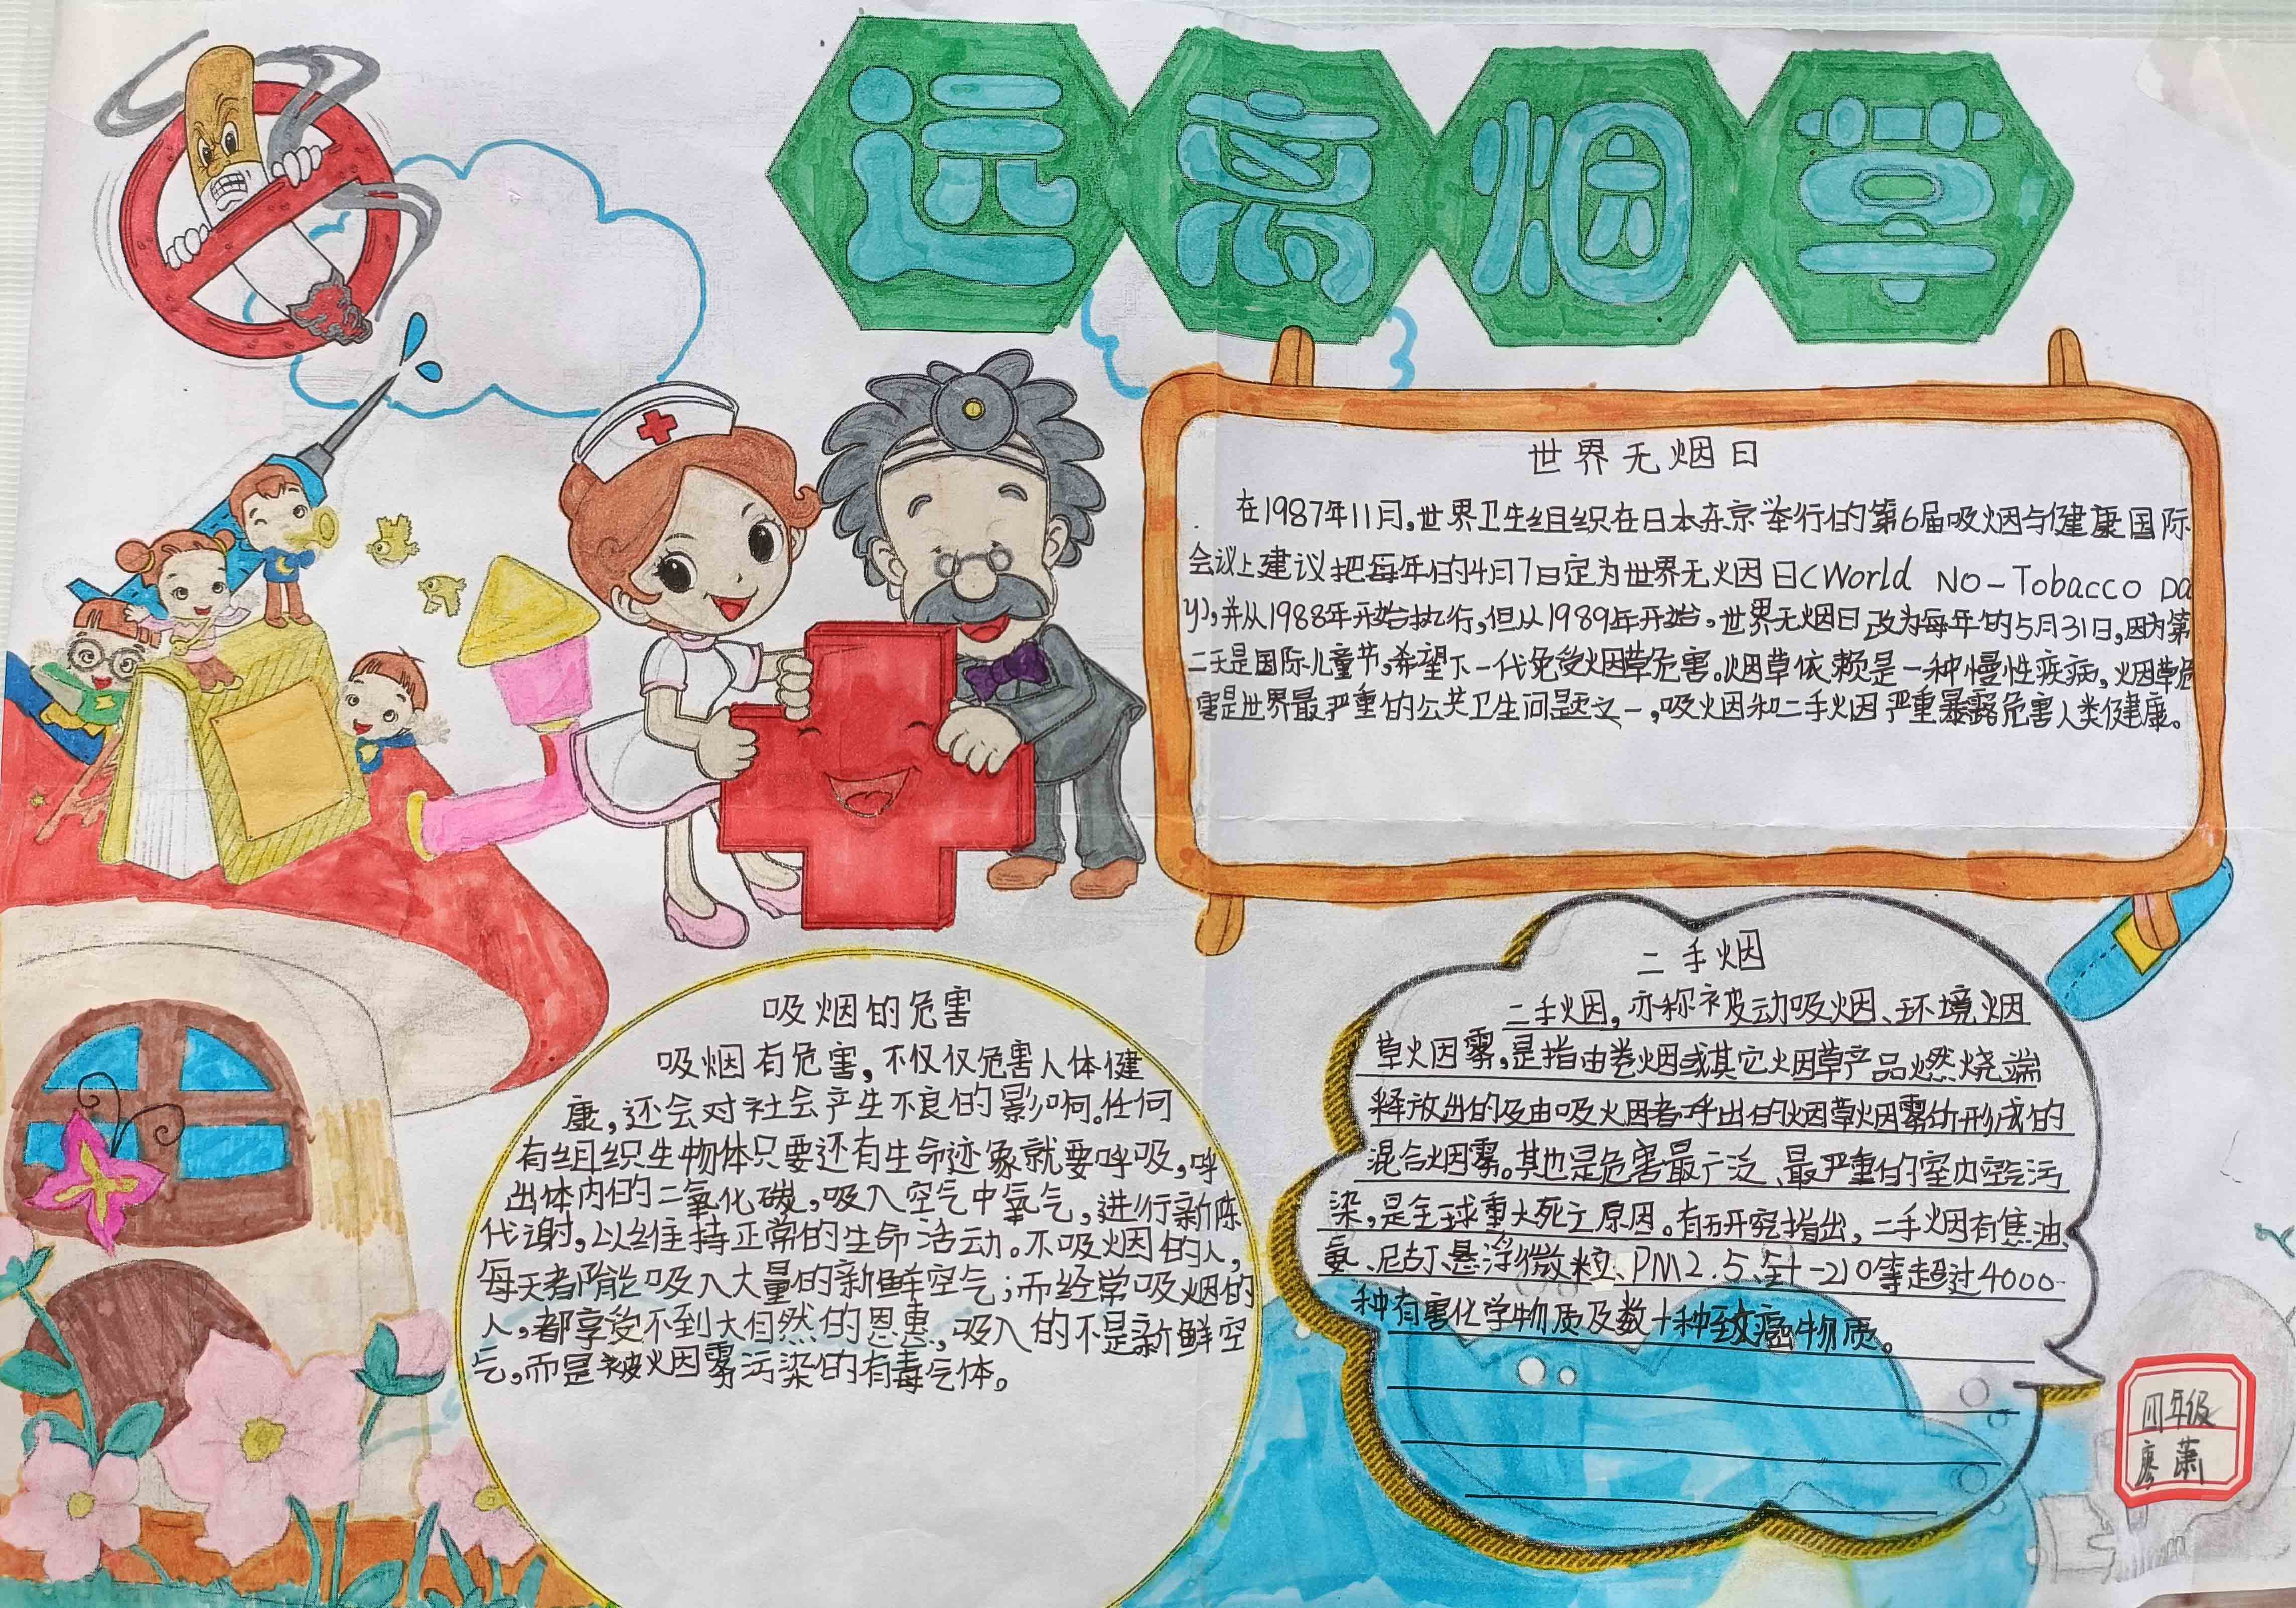 远离烟草
世界无烟日
在1987年11月,世界卫生组织在日本东京举行的第6届吸烟与健康国际
会议上建议把每年的4月7日定为世界无烟日(World No-Tobacco Da
y),并从1988年开始执行,但从1989年开始,世界无烟日改为每年的5月31日,因为第
二天是国际儿童节,希望下一代免受烟草危害。烟草依赖是一种慢性疾病,烟草危
害是世界最严重的公共卫生问题之一,吸烟和二手烟严重暴露危害人类健康。
吸烟的危害
吸烟有危害,不仅仅危害人体健
康,还会对社会产生不良的影响。任何
有组织生物体只要还有生命迹象就要呼吸,呼
出体内的二氧化碳,吸入空气中氧气,进行新陈
代谢,以维持正常的生命活动。不吸烟的人,
每天者阶能吸入大量的新鲜空气;而经常吸烟的
人,都享受不到大自然的恩惠,吸入的不是新鲜空
气,而是被烟雾污染的有毒气体。
二手烟
二手烟,亦称被动吸烟、环境烟
草烟雾,是指由卷烟或其它烟草产品燃烧端
释放出的及由吸烟者呼出的烟草烟雾所形成的
混合烟雾。其也是危害最广泛、最严重的室内空气污
染,是全球重大死亡原因。有研究指出,二手烟有焦油、
氨、尼古丁、悬浮微粒、PM2.5、钋-210等超过4000
种有害化学物质及数十种致癌物质。
四年级
廖萧